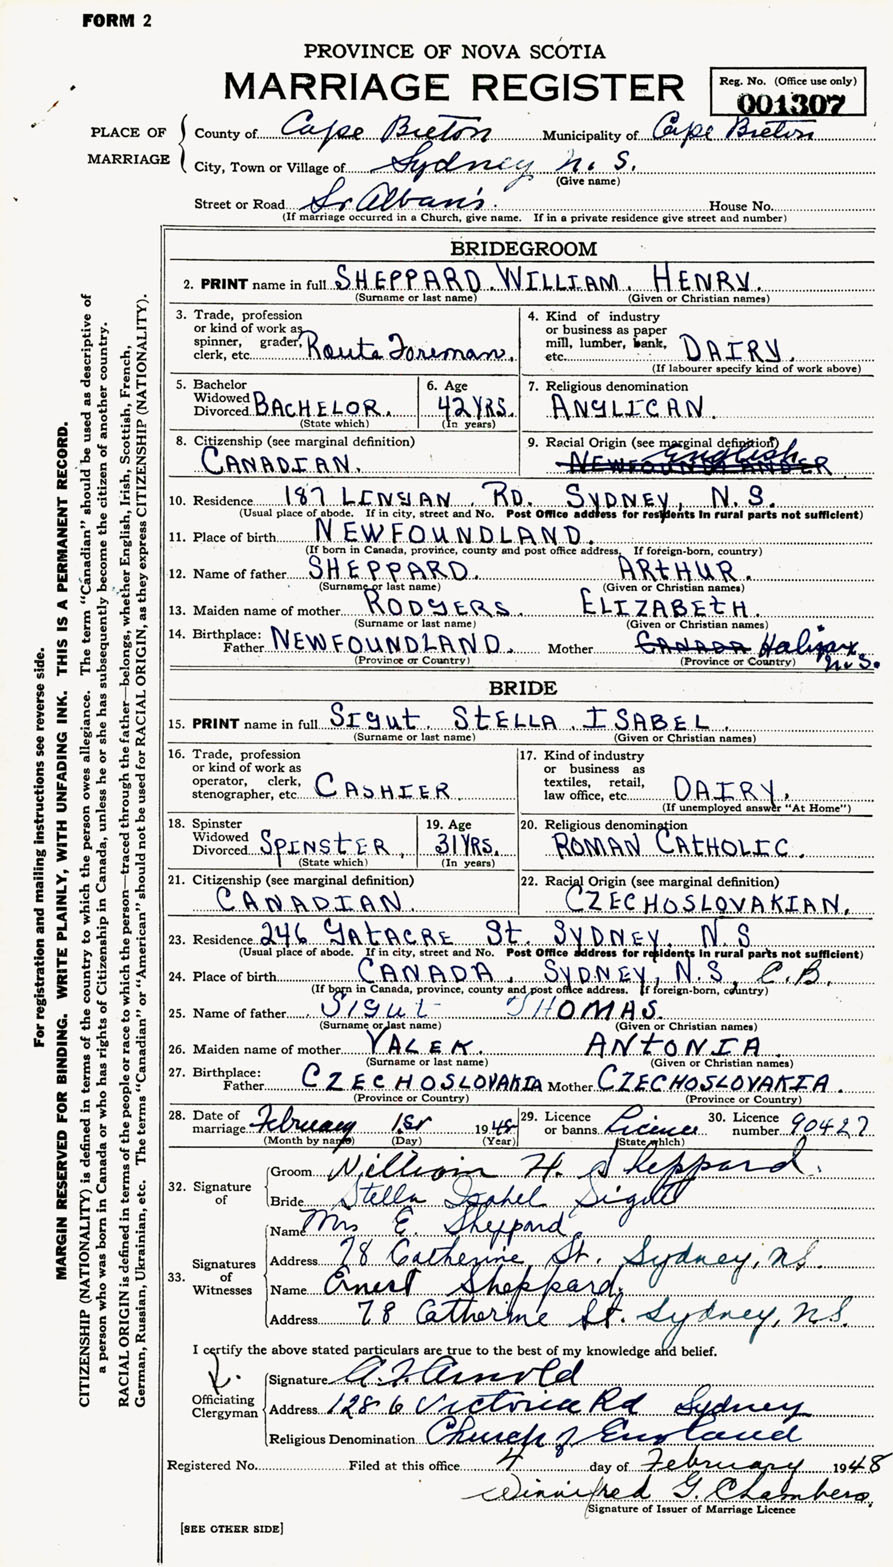 FORM 2
PROVINCE OF NOVA SCOTIA
MARRIAGE REGISTER
Reg. No. (Office use only)
001307
PLACE OF MARRIAGE
County of Cape Breton Municipality of Cape Breton
City, Town or Village of Sydney N. S.
(Give name)
Street or Road St Alban's. House No.
(If marriage occurred in a Church, give name. If in a private residence give street and number)
BRIDEGROOM
2. PRINT name in full SHEPPARD. WILLIAM. HENRY.
(Surname or last name) (Given or Christian names)
3. Trade, profession or kind of work as spinner, grader, clerk, etc. Route Foreman.
4. Kind of industry or business as paper mill, lumber, bank, etc. DAIRY.
(If labourer specify kind of work above)
5. Bachelor Widowed Divorced BACHELOR.
(State which)
6. Age 42 YRS.
(In years)
7. Religious denomination ANGLICAN.
8. Citizenship (see marginal definition) CANADIAN.
9. Racial Origin (see marginal definition) English
NEWFOUNDLANDER
10. Residence 187 LINGAN RD. SYDNEY, N.S.
(Usual place of abode. If in city, street and No. Post Office address for residents in rural parts not sufficient)
11. Place of birth NEWFOUNDLAND.
(If born in Canada, province, county and post office address. If foreign-born, country)
12. Name of father SHEPPARD. ARTHUR.
(Surname or last name) (Given or Christian names)
13. Maiden name of mother RODGERS ELIZABETH.
(Surname or last name) (Given or Christian names)
14. Birthplace: Father NEWFOUNDLAND. Mother CANADA Halifax, N.S.
(Province or Country) (Province or Country)
BRIDE
15. PRINT name in full SIGUT. STELLA. ISABEL.
(Surname or last name) (Given or Christian names)
16. Trade, profession or kind of work as operator, clerk, stenographer, etc. CASHIER.
17. Kind of industry or business as textiles, retail, law office, etc. DAIRY.
(If unemployed answer "At Home")
18. Spinster Widowed Divorced SPINSTER,
(State which)
19. Age 31 YRS.
(In years)
20. Religious denomination ROMAN CATHOLIC.
21. Citizenship (see marginal definition) CANADIAN.
22. Racial Origin (see marginal definition) CZECHOSLOVAKIAN.
23. Residence 246 GATACRE St. SYDNEY, N.S
(Usual place of abode. If in city, street and No. Post Office address for residents in rural parts not sufficient)
24. Place of birth CANADA, SYDNEY, N.S, C.B.
(If born in Canada, province, county and post office address. If foreign-born, country)
25. Name of father SIGUT THOMAS.
(Surname or last name) (Given or Christian names)
26. Maiden name of mother VALEK. ANTONIA.
(Surname or last name) (Given or Christian names)
27. Birthplace: Father CZECHOSLOVAKIA Mother CZECHOSLOVAKIA.
(Province or Country) (Province or Country)
28. Date of marriage February 1st 1948
(Month by name) (Day) (Year)
29. Licence or banns Licence
(State which)
30. Licence number 90427
32. Signature of
Groom William H. Sheppard.
Bride Stella Isabel Sigut
33. Signatures of Witnesses
Name Mrs E Sheppard
Address 78 Catherine St. Sydney, NS.
Name Ernest Sheppard,
Address 78 Catherine St. Sydney, N.S.
I certify the above stated particulars are true to the best of my knowledge and belief.
Officiating Clergyman
Signature A. F. Arnold
Address 128 6 Victoria Rd Sydney
Religious Denomination Church of England
Registered No. Filed at this office 4 day of February 1948
Winnifred G. Chambers
Signature of Issuer of Marriage Licence
[SEE OTHER SIDE]
For registration and mailing instructions see reverse side.
MARGIN RESERVED FOR BINDING. WRITE PLAINLY, WITH UNFADING INK. THIS IS A PERMANENT RECORD.
CITIZENSHIP (NATIONALITY) is defined in terms of the country to which the person owes allegiance. The term "Canadian" should be used as descriptive of
a person who was born in Canada or who has rights of Citizenship in Canada, unless he or she has subsequently become the citizen of another country.
RACIAL ORIGIN is defined in terms of the people or race to which the person—traced through the father—belongs, whether English, Irish, Scottish, French,
German, Russian, Ukrainian, etc. The terms "Canadian" or "American" should not be used for RACIAL ORIGIN, as they express CITIZENSHIP (NATIONALITY).